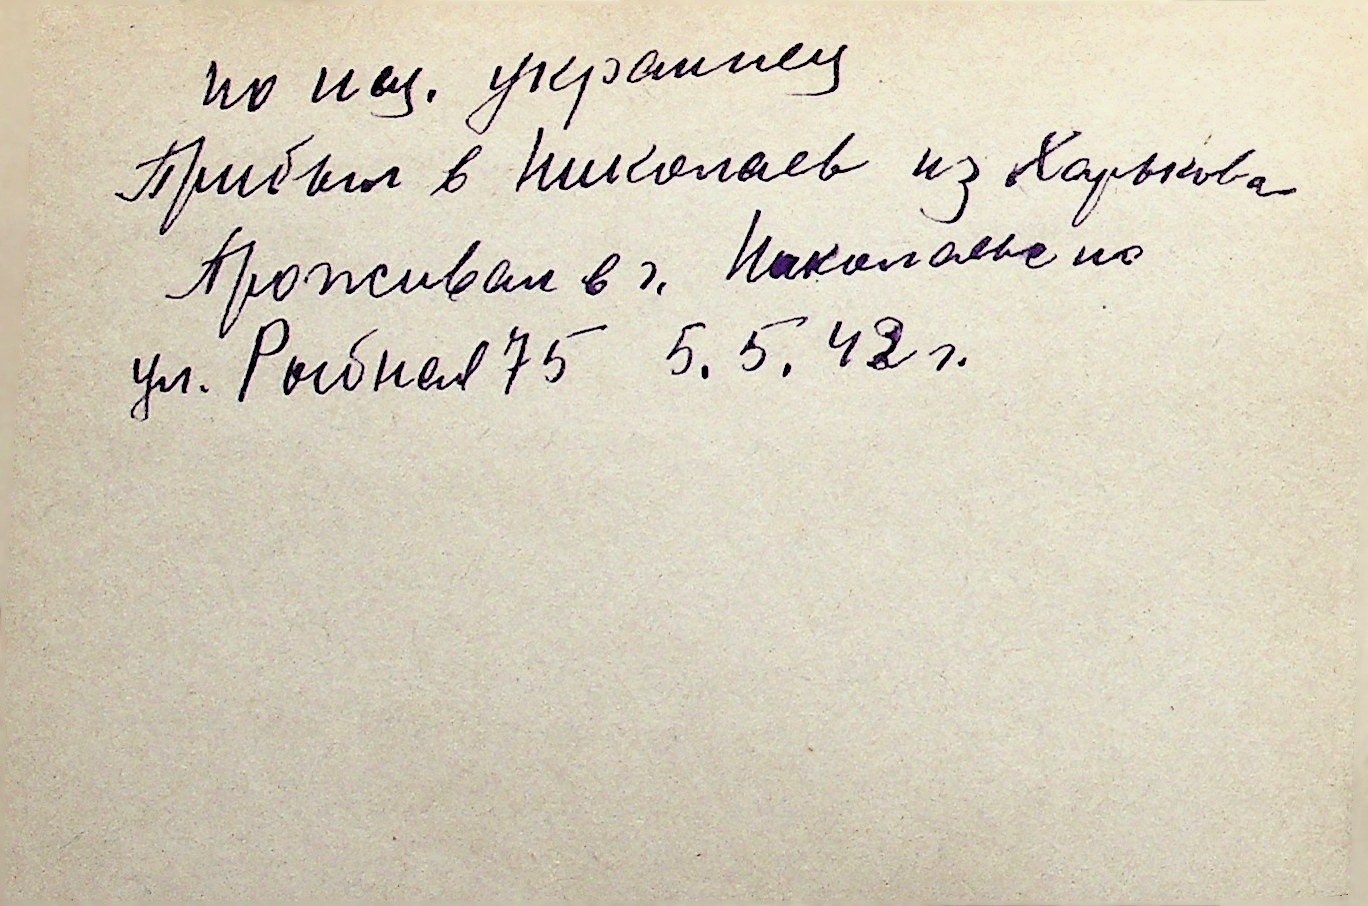 по нац. украинец
Прибыл в Николаев из Харькова
Проживал в г. Николаеве по
ул. Рыбная 75 5.5.42 г.